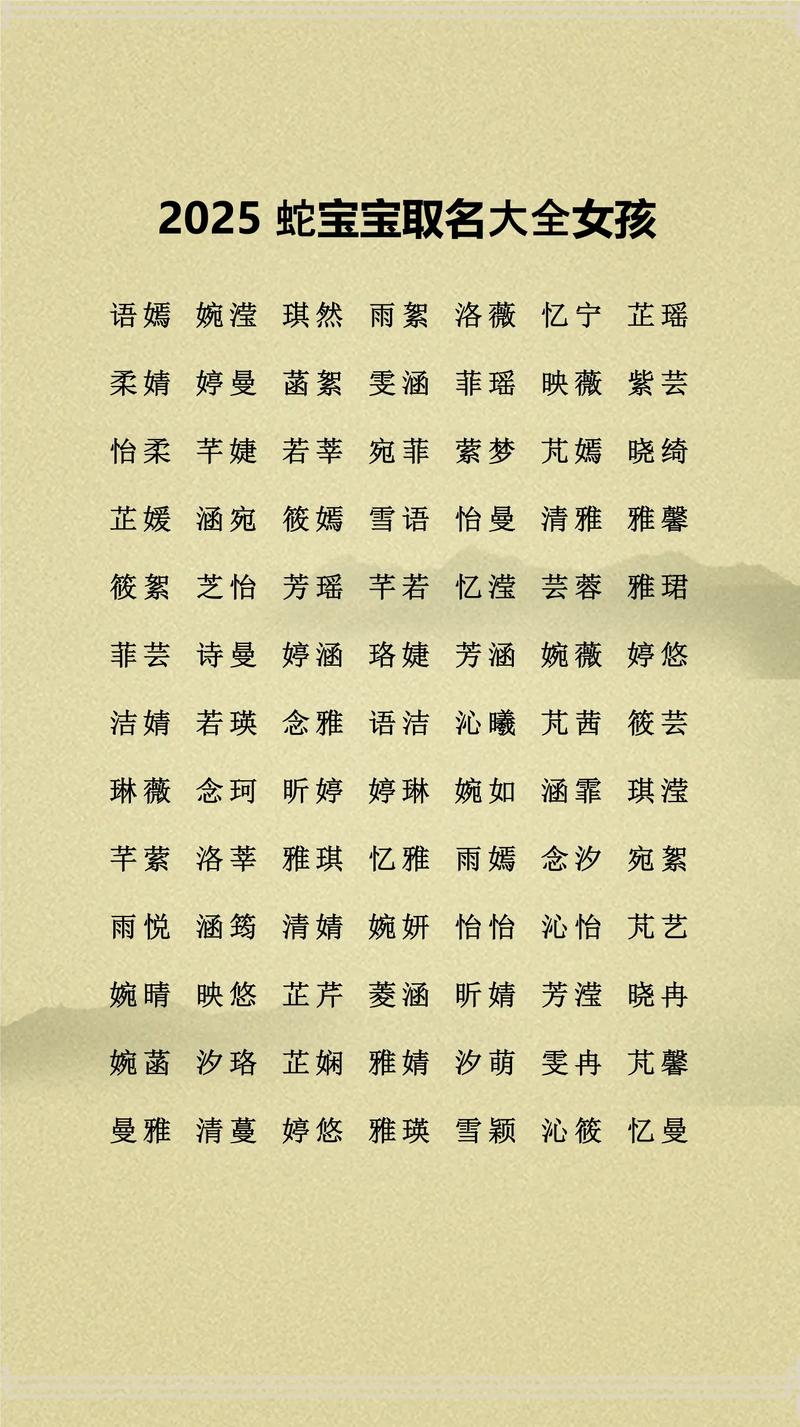 2025 蛇宝宝取名大全女孩
语嫣 婉滢 琪然 雨絮 洛薇 忆宁 芷瑶
柔婧 婷曼 菡絮 雯涵 菲瑶 映薇 紫芸
怡柔 芊婕 若莘 宛菲 萦梦 芃嫣 晓绮
芷媛 涵宛 筱嫣 雪语 怡曼 清雅 雅馨
筱絮 芝怡 芳瑶 芊若 忆滢 芸蓉 雅珺
菲芸 诗曼 婷涵 珞婕 芳涵 婉薇 婷悠
洁婧 若瑛 念雅 语洁 沁曦 芃茜 筱芸
琳薇 念珂 昕婷 婷琳 婉如 涵霏 琪滢
芊萦 洛莘 雅琪 忆雅 雨嫣 念汐 宛絮
雨悦 涵筠 清婧 婉妍 怡怡 沁怡 芃艺
婉晴 映悠 芷芹 菱涵 昕婧 芳滢 晓冉
婉菡 汐珞 芷娴 雅婧 汐萌 雯冉 芃馨
曼雅 清蔓 婷悠 雅瑛 雪颖 沁筱 忆曼